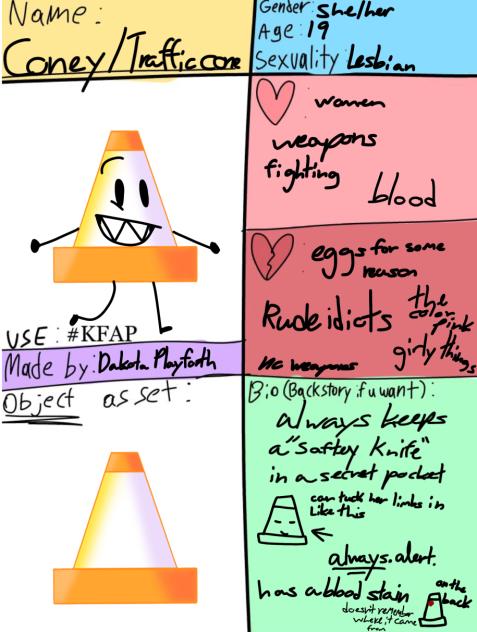 Name:
Coney/Trafficcone
Gender: she/her
Age: 19
Sexuality Lesbian
women
weapons
fighting
blood
eggs for some
reason
Rude idiots
the
color
pink
girly things
no weapons
USE: #KFAP
Made by: Dakota Playforth
Object asset:
Bio (Backstory if u want):
always keeps
a "saftey knife"
in a secret pocket
can tuck her limbs in
like this
always alert.
has a blood stain
on the
back
doesn't remember
where it came
from